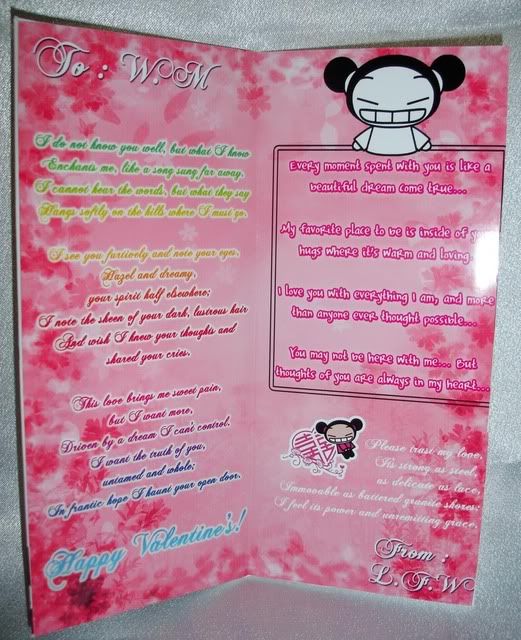 To : W.M
I do not know you well, but what I know
Enchants me, like a song sung far away.
I cannot hear the words, but what they say
Hangs softly on the hills where I must go.
I see you furtively and note your eyes,
Hazel and dreamy,
your spirit half elsewhere;
I note the sheen of your dark, lustrous hair
And wish I knew your thoughts and
shared your cries.
This love brings me sweet pain,
but I want more,
Driven by a dream I can't control.
I want the truth of you,
untamed and whole;
In frantic hope I haunt your open door.
Happy Valentine's!
Every moment spent with you is like a
beautiful dream come true...
My favorite place to be is inside of your
hugs where it's warm and loving
I love you with everything I am, and more
than anyone ever thought possible...
You may not be here with me... But
thoughts of you are always in my heart...
Please trust my love,
Tis strong as steel,
as delicate as lace,
Immovable as battered granite shores:
I feel its power and unremitting grace.
From :
L.F.W